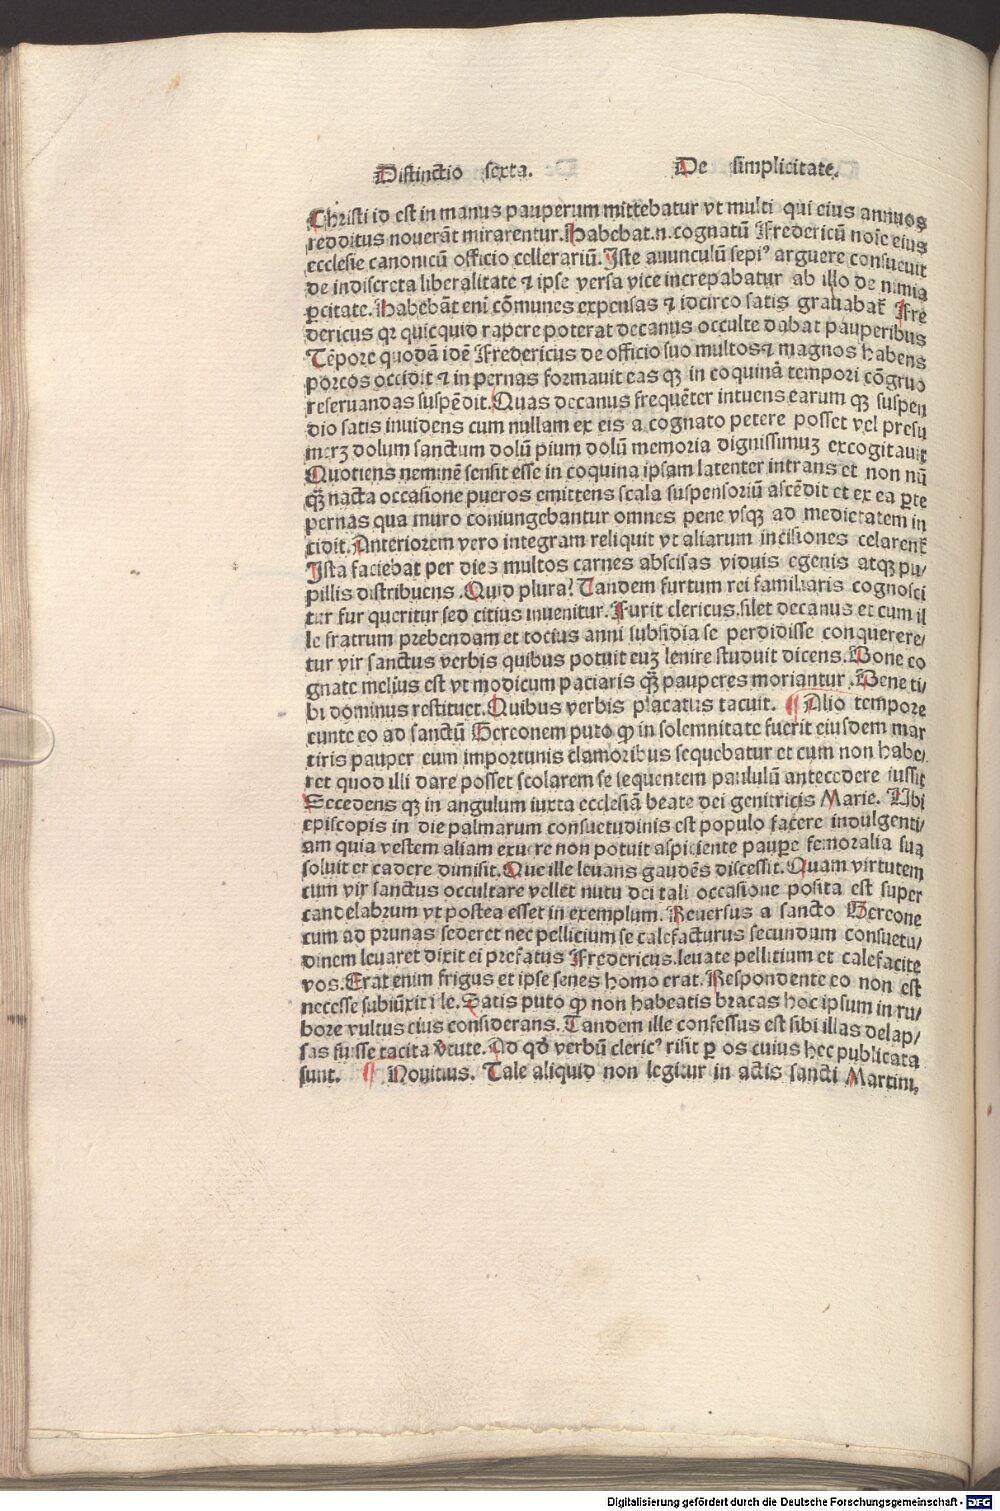 Distinctio sexta. De simplicitate.
Christi id est in manus pauperum mittebatur vt multi qui eius annuos
redditus nouerāt mirarentur. Habebat .n. cognatū Fredericū noīe eius
ecclesie canonicū officio cellerariū. Iste auunculū sepiꝰ arguere consueuit
de indiscreta liberalitate ⁊ ipse versa vice increpabatur ab illo de nimia
ꝑcitate. Habebāt eni cōmunes expensas ⁊ idcirco satis grauabat᷑ Fre
dericus qꝛ quicquid rapere poterat decanus occulte dabat pauperibus
Tēpore quodā idē Fredericus de officio suo multos ⁊ magnos habens
porcos occidit ⁊ in pernas formauit eas qꝫ in coquinā tempori cōgruo
reseruandas suspēdit. Quas decanus frequēter intuens earum qꝫ suspen
dio satis inuidens cum nullam ex eis a cognato petere posset vel presu
merꝫ dolum sanctum dolū pium dolū memoria dignissimuꝫ excogitauit
Quotiens neminē sensit esse in coquina ipsam latenter intrans et non nū
qꝫ̄ nacta occasione pueros emittens scala suspensoriū ascēdit et ex ea ꝑte
pernas qua muro coniungebantur omnes pene vsqꝫ ad medietatem in
cidit. Anteriorem vero integram reliquit vt aliarum incisiones celarent᷑
Ista faciebat per dies multos carnes abscisas viduis egenis atqꝫ pu/
pillis distribuens. Quid plura? Tandem furtum rei familiaris cognosci
tur fur queritur sed citius inuenitur. Furit clericus. silet decanus et cum il
le fratrum prebendam et tocius anni subsidia se perdidisse conquerere/
tur vir sanctus verbis quibus potuit euꝫ lenire studuit dicens. Bone co
gnate melius est vt modicum paciaris qꝫ̄ pauperes moriantur. Bene ti/
bi dominus restituet. Quibus verbis placatus tacuit. ¶ Alio tempore
eunte eo ad sanctū Gereonem puto ꝙ in solemnitate fuerit eiusdem mar
tiris pauper eum importunis clamoribus sequebatur et cum non habe/
ret quod illi dare posset scolarem se sequentem paululū antecedere iussit
Secedens qꝫ in angulum iuxta ecclesiā beate dei genitricis Marie. Ubi
episcopis in die palmarum consuetudinis est populo facere indulgenti/
am quia vestem aliam exuere non potuit aspiciente paupe femoralia sua
soluit et cadere dimisit. Que ille leuans gaudēs discessit. Quam virtutem
cum vir sanctus occultare vellet nutu dei tali occasione posita est super
candelabrum vt postea esset in exemplum. Reuersus a sancto Gereone
cum ad prunas sederet nec pellicium se calefacturus secundum consuetu/
dinem leuaret dixit ei prefatus Fredericus. leuate pellitium et calefacite
vos. Erat enim frigus et ipse senes homo erat. Respondente eo non est
necesse subiūxit ille. Satis puto ꝙ non habeatis bracas hoc ipsum in ru/
bore vultus eius considerans. Tandem ille confessus est sibi illas delap/
sas fuisse tacita v̄tute. Ad qd̄ verbū clericꝰ risit ꝑ os cuius hec publicata
sunt. ¶ Nouitius. Tale aliquid non legitur in actis sancti Martini,
Digitalisierung gefördert durch die Deutsche Forschungsgemeinschaft - DFG